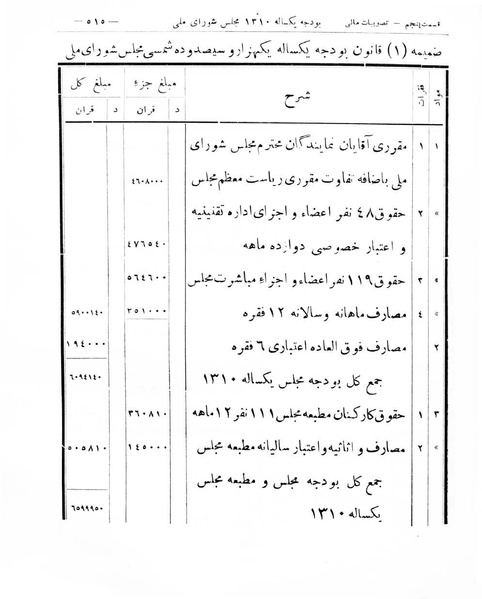 قسمت پنجم - تصویبات مالی    بودجه یکساله ۱۳۱۰ مجلس شورای ملی    - ۵۱۵ -
ضمیمه (۱) قانون بودجه یکساله یکهزار و سیصد و ده شمسی مجلس شورای ملی
مواد    فقرات    شرح    مبلغ جزء    مبلغ کل
قران    د    قران    د
۱    ۱    مقرری آقایان نمایندگان محترم مجلس شورای
ملی باضافه تفاوت مقرری ریاست معظم مجلس    ۴۶۰۸۰۰۰
»    ۲    حقوق ۴۸ نفر اعضاء و اجزای اداره تقنینیه
و اعتبار خصوصی دوازده ماهه    ۴۷۶۵۴۰
»    ۳    حقوق ۱۱۹ نفر اعضاء و اجزاء مباشرت مجلس    ۵۶۴۶۰۰
»    ۴    مصارف ماهانه و سالانه ۱۲ فقره    ۲۵۱۰۰۰    ۵۹۰۰۱۴۰
۲    مصارف فوق العاده اعتباری ۶ فقره    ۱۹۴۰۰۰
جمع کل بودجه مجلس یکساله ۱۳۱۰    ۶۰۹۴۱۴۰
۳    ۱    حقوق کارکنان مطبعه مجلس ۱۱۱ نفر ۱۲ ماهه    ۳۶۰۸۱۰
»    ۲    مصارف و اثاثیه و اعتبار سالیانه مطبعه مجلس    ۱۴۵۰۰۰    ۵۰۵۸۱۰
جمع کل بودجه مجلس و مطبعه مجلس
یکساله ۱۳۱۰    ۶۵۹۹۹۵۰